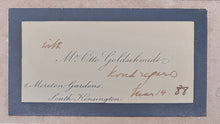 with
Mr. Otto Goldschmidt's
kind regards
Moreton Gardens,
South Kensington. Mar 14 88